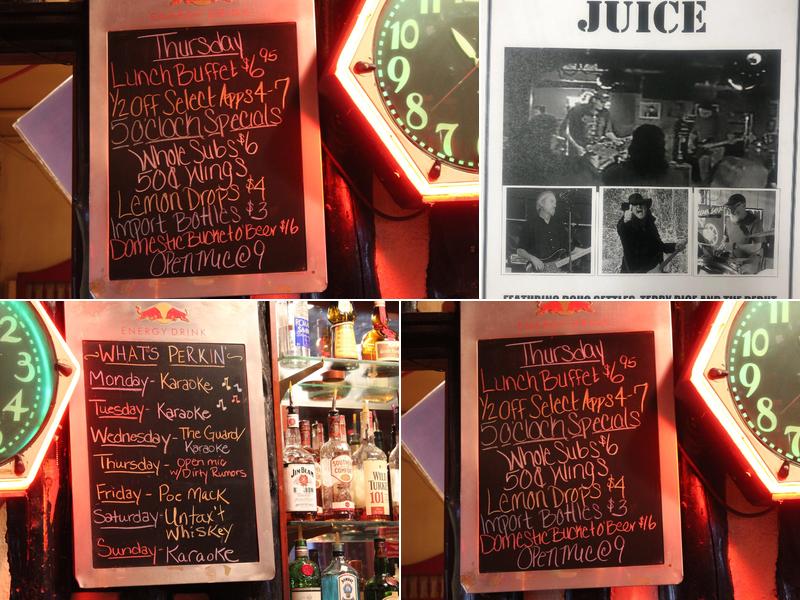 Thursday
Lunch Buffet $6.95
1/2 off Select Apps 4-7
5 o'clock Specials
Whole Subs $6
50¢ Wings
Lemon Drops $4
Import Bottles $3
Domestic Bucket o Beer $16
Open Mic @ 9
10
9
8
7
JUICE
2
3
4
ENERGY DRINK
WHAT'S PERKIN'
Monday - Karaoke
Tuesday - Karaoke
Wednesday - The Guard/
Karaoke
Thursday - open mic
w/Dirty Rumors
Friday - Poe Mack
Saturday - Untax't
Whiskey
Sunday - Karaoke
JIM BEAM
SOUTHERN
COMFORT
WILD
TURKEY
101
Thursday
Lunch Buffet $6.95
1/2 off Select Apps 4-7
5 o'clock Specials
Whole Subs $6
50¢ Wings
Lemon Drops $4
Import Bottles $3
Domestic Bucket o Beer $16
Open Mic @ 9
11
10
9
8